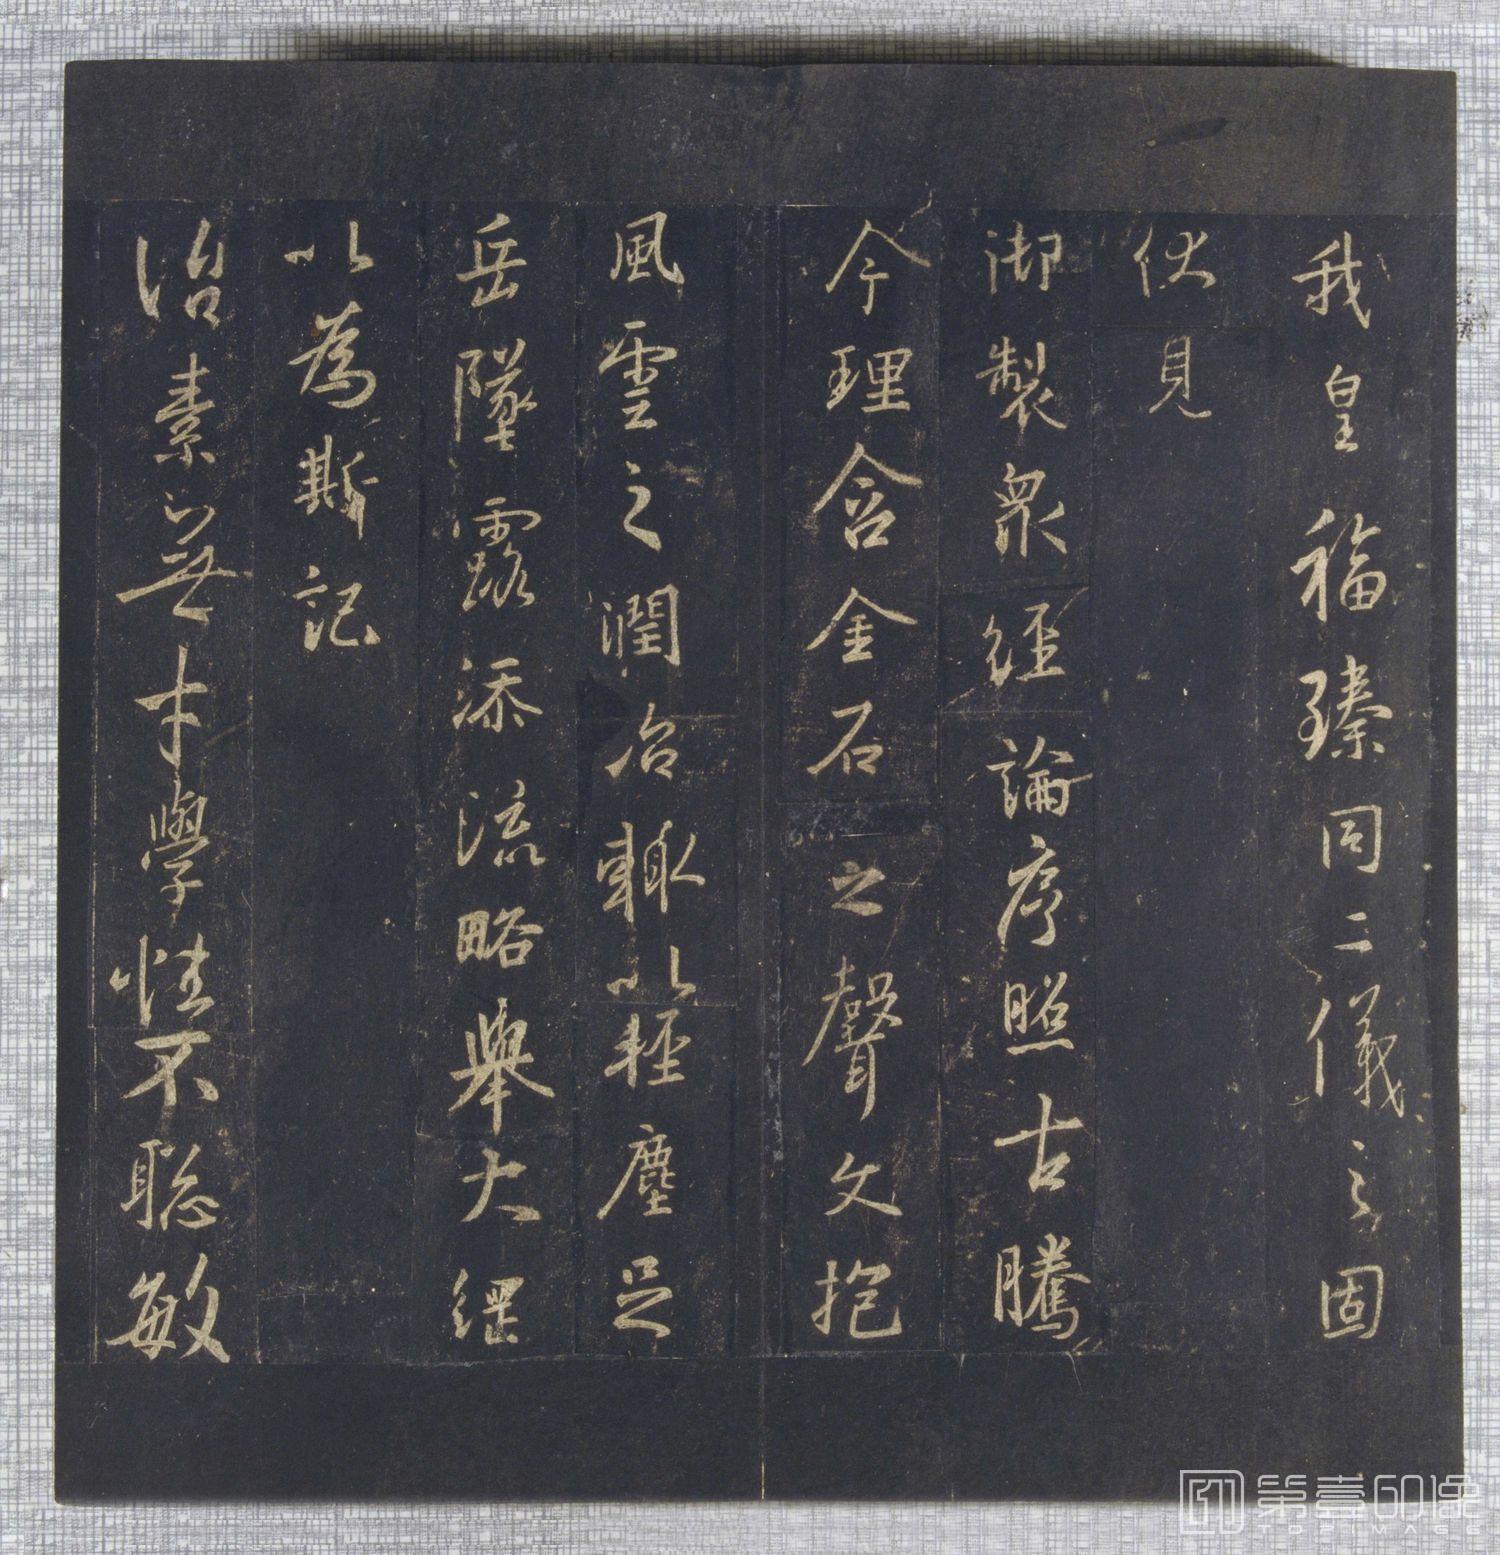 我皇福臻同二儀之固
伏見
御製衆經論序照古騰
今理含金石之聲文抱
風雲之潤治輒以輕塵足
岳墜露添流略舉大綱
以為斯記
治素無才學性不聡敏
第壹印像
TOPIMAGE